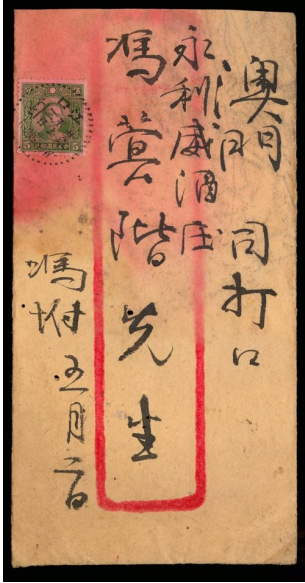 奥門 司打口
永利威酒庄
馮萱階先生
馮付 五月二百
5
5